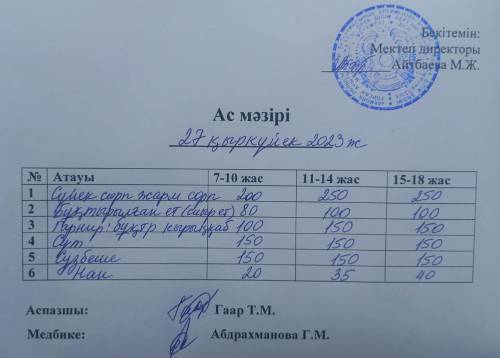 Бекітемін:
Мектеп директоры
Айтбаева М.Ж.
Ас мәзірі
27 қыркүйек 2023 ж
№ Атауы 7-10 жас 11-14 жас 15-18 жас
1 Сүйек сорп жарм сорп 200 250 250
2 Бұқтырылған ет (сиыр ет) 80 100 100
3 Гарнир: бұқтр қырыққаб 100 150 150
4 Сүт 150 150 150
5 Сүзбеше 150 150 150
6 Нан 20 35 40
Аспазшы: Гаар Т.М.
Медбике: Абдрахманова Г.М.